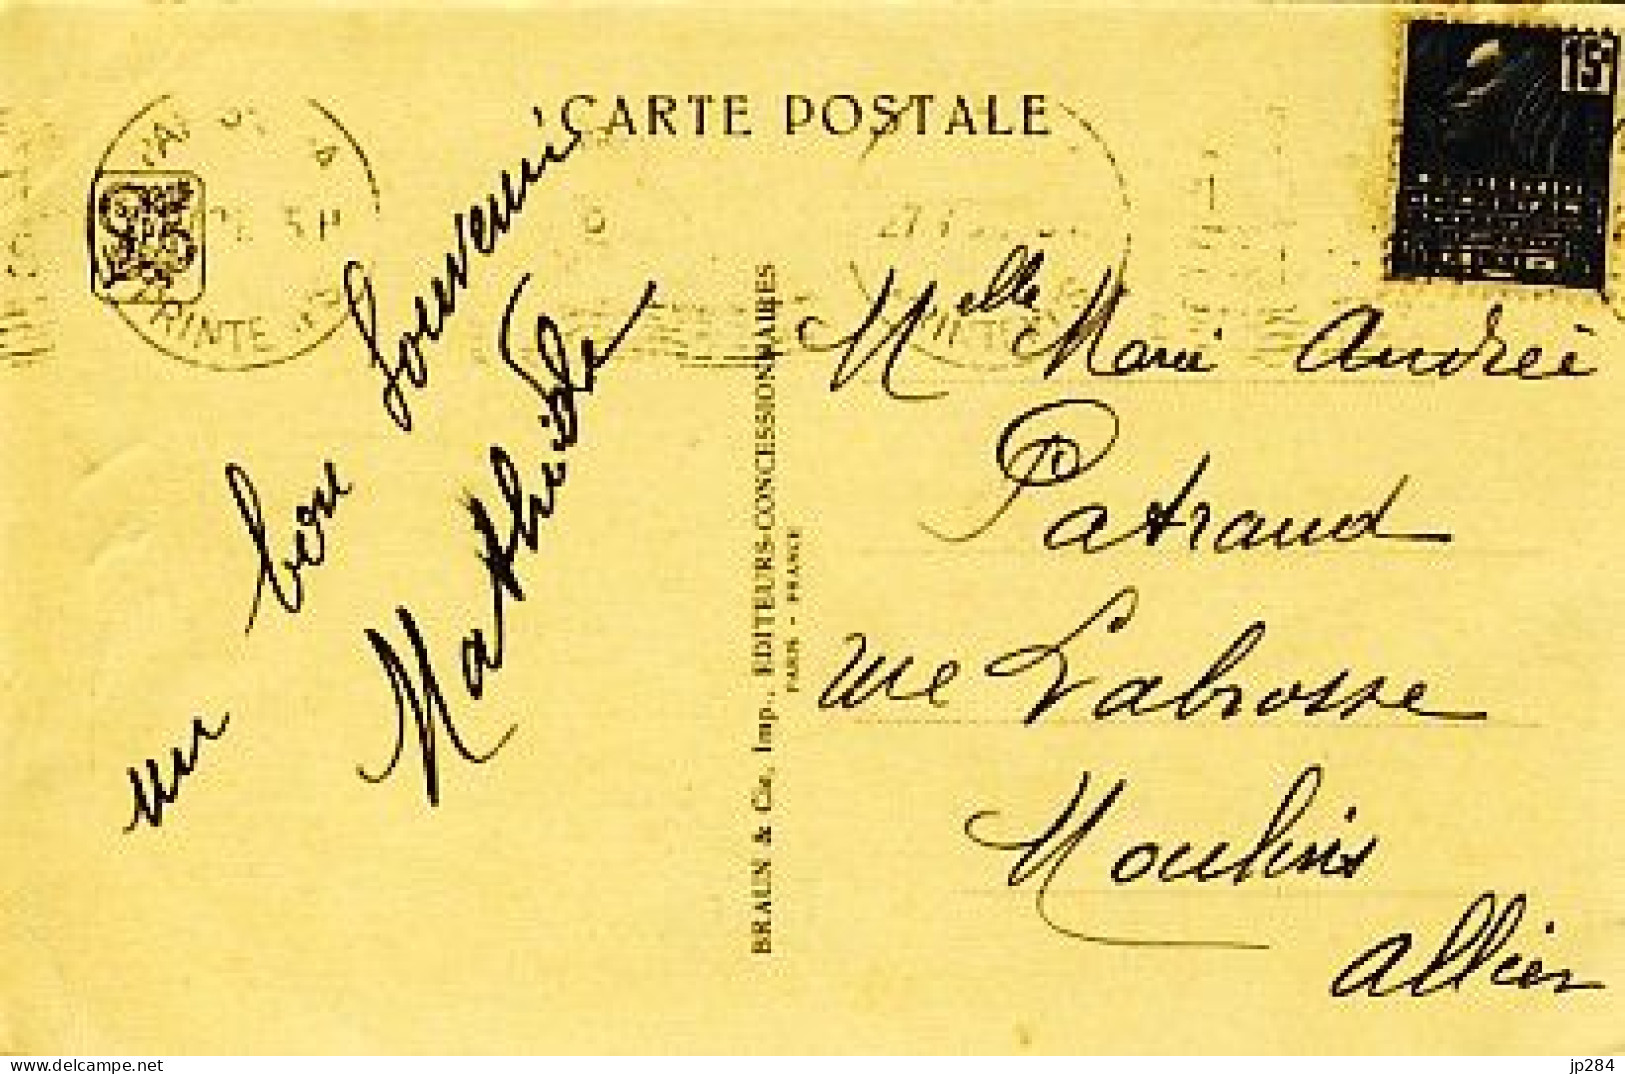 CARTE POSTALE
15c
un bon Souvenir
Mathilde
BRAUN & Cie, Imp., EDITEURS-CONCESSIONNAIRES
PARIS - FRANCE
Melle Marie Andrée
Patraud
rue Labrosse
Moulins
Allier
jp284